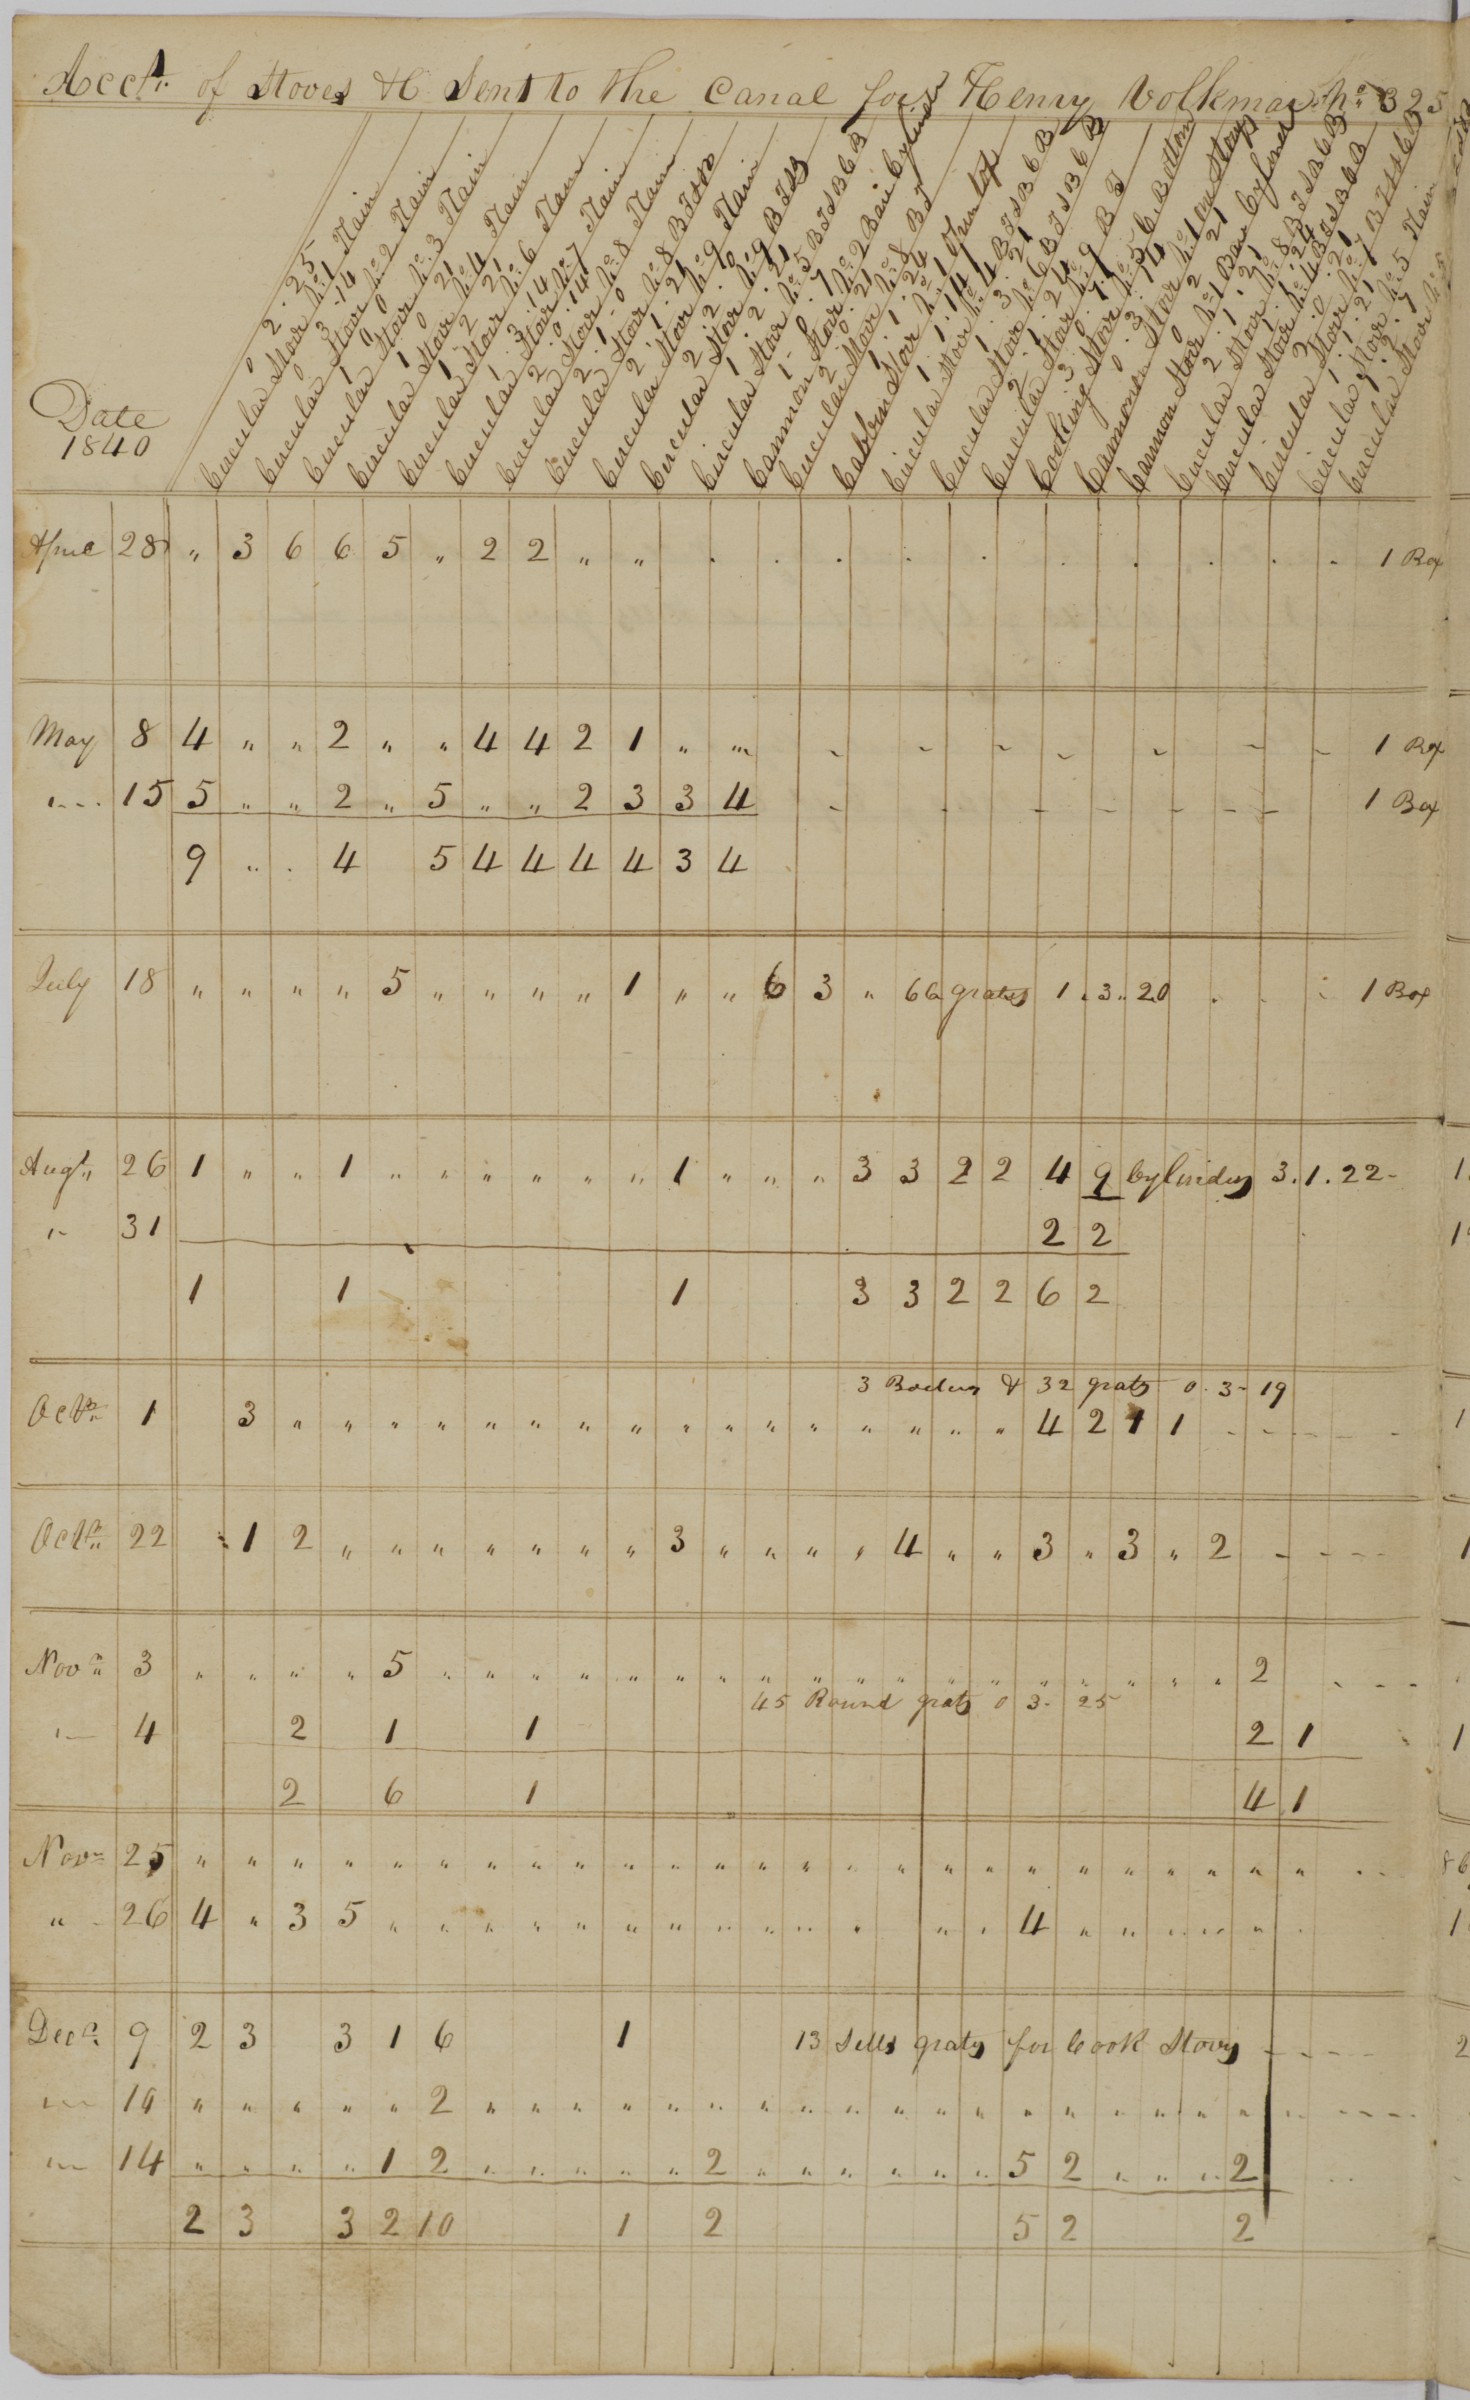 Acct. of Stoves &c Sent to the Canal for Henry Volkmar No. 325
Date
1840
0 2 25
Circular Stove No. 1 Plain
0 3 14
Circular Stove No. 2 Plain
1 0 0
Circular Stove No. 3 Plain
1 0 21
Circular Stove No. 4 Plain
1 2 21
Circular Stove No. 6 Plain
1 3 14
Circular Stove No. 7 Plain
2 0 14
Circular Stove No. 8 Plain
2 1 0
Circular Stove No. 8 B T
2 1 21
Circular Stove No. 9 Plain
2 2 0
Circular Stove No. 9 B T
1 2 21
Circular Stove No. 5 B T S B C B
1 0 7
Cannon Stove No. 2 Bare Cylinder
2 0 21
Circular Stove No. 8 B T
1 1 24
Cabbin Stove No. 1 Open top
1 1 14
Circular Stove No. 4 B T S B C B
1 3 21
Circular Stove No. 6 B T S B C B
2 1 24
Circular Stove No. 9 B T
Cooking Stove No. 5 C. Bottom
0 3 14
Cannon Stove No. 1
0 2 21
Cannon Stove No. 1 Bare Cylinder
2 1 21
Circular Stove No. 8 B T S B C B
1 1 24
Circular Stove No. 4 B T S B C B
Circular Stove No. 7 B T S B C B
1 1 21
Circular Stove No. 5 Plain
1 2 7
Circular Stove No.
April 28 " 3 6 6 5 " 2 2 " " . . . . . . . . . . 1 Box
May 8 4 " " 2 " " 4 4 2 1 " " - - - - - - - 1 Box
" 15 5 " " 2 " 5 " " 2 3 3 4 - - - - - - - 1 Box
9 " . 4 5 4 4 4 4 3 4
July 18 " " " " 5 " " " " 1 " " 6 3 " 66 grates 1 . 3 .. 20 . . : 1 Box
Augt. 26 1 " " 1 " " " " " " 1 " " " 3 3 2 2 4 9 Cylinders 3 . 1 . 22 -
" 31 2 2
1 1 1 3 3 2 2 6 2
3 Boilers & 32 grats 0 . 3 - 19
Octr. 1 3 " " " " " " " " " " " " " " " " 4 2 1 1 - - - - -
Octr. 22 1 2 " " " " " " " 3 " " " " 4 " " 3 " 3 " 2 - - - -
Novr. 3 " " " " 5 " " " " " " " " " " " " " " " " " 2 - - -
45 Round grats 0 3 - 25
" 4 2 1 1 2 1
2 6 1 4 1
Novr. 25 " " " " " " " " " " " " " " " " " " " " " " " "
" 26 4 " 3 5 " " " " " " " " " " " " " 4 " " " " " "
Decr. 9 2 3 3 1 6 1 13 Setts grats for Cook Stovs - - - -
" 10 " " " " " 2 " " " " " " " " " " " " " " " " "
" 14 " " " " 1 2 " " " " " 2 " " " " " " 5 2 " " " 2
2 3 3 2 10 1 2 5 2 2